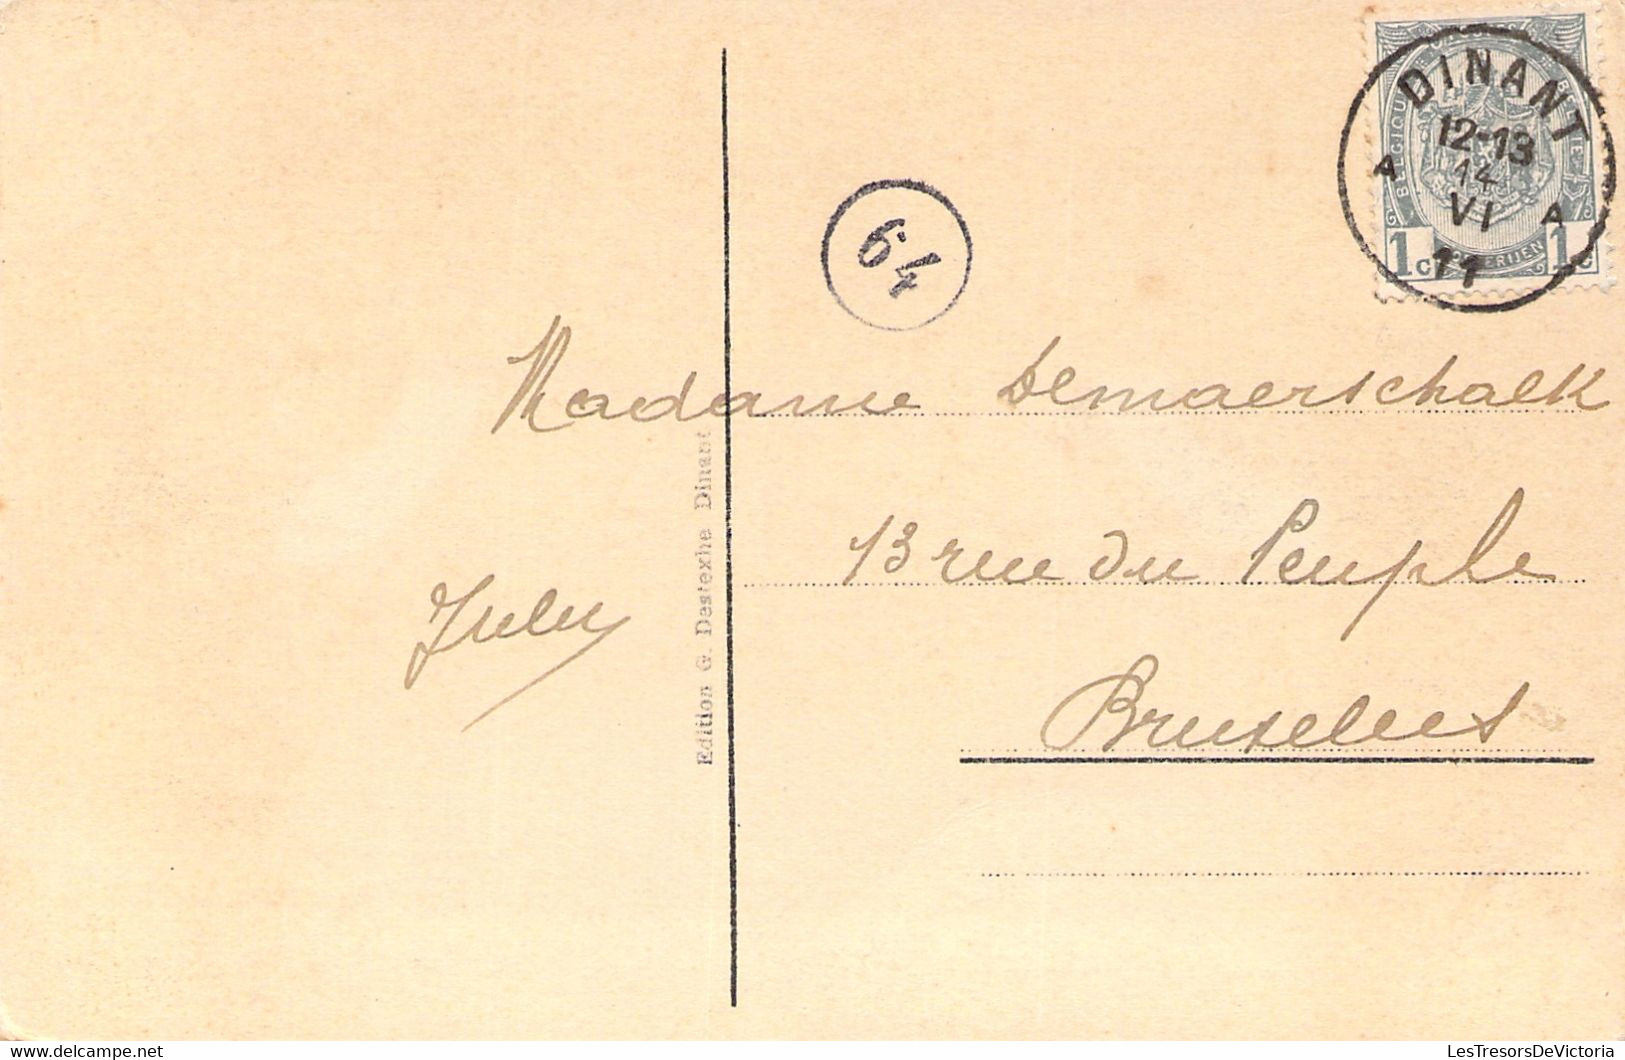 DINANT
12-13
14
VI
11
A A
BELGIQUE
1c 1c
64
Madame Demaerschalk
13 rue du Peuple
Bruxelles
Edition G. Destexhe Dinant
www.delcampe.net
LesTresorsDeVictoria